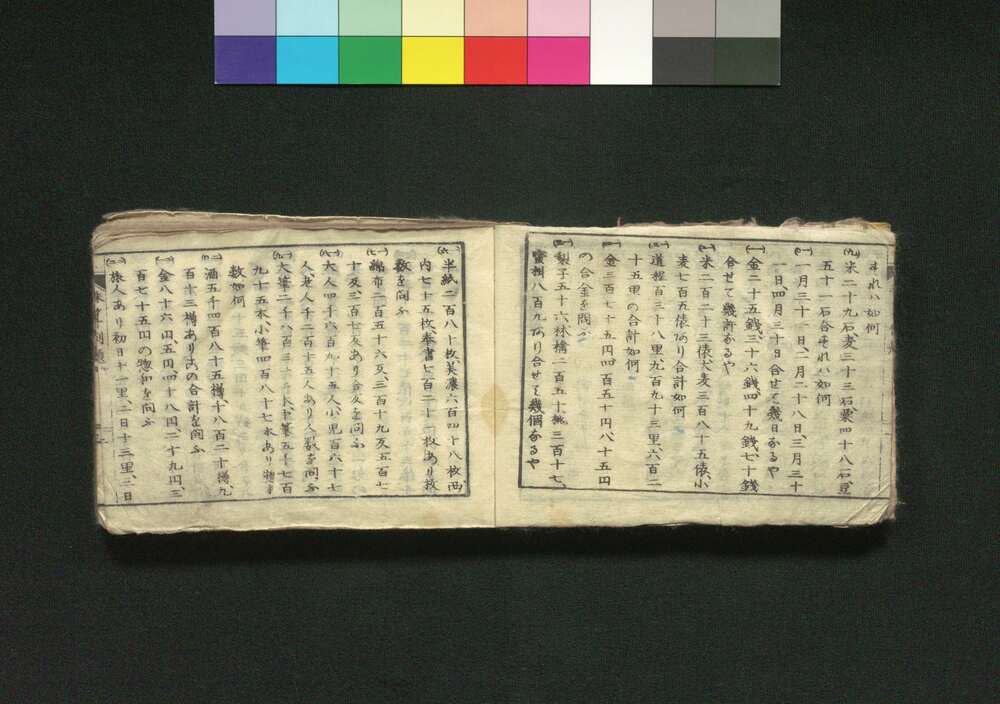 すれハ如何
(九)米二十九石麦三十三石粟四十八石豆
五十一石合すれハ如何
(十)一月三十一日、二月二十八日、三月三十
一日、四月三十日合せて幾日なるや
(一)金二十五銭、三十六銭、四十九銭、七十銭
合せて幾許なるや
(二)米二百二十三俵大麦三百八十五俵、小
麦七百五俵あり合計如何
(三)道程百三十八里、九百九十三里、六百二
十五里の合計如何
(四)金三百七十五円四百五十円八十五円
の合金を問ふ
(五)梨子五十六林檎二百五十桃三百十七、
蜜柑八百九あり合せて幾個なるや
(六)半紙二百八十枚、美濃六百四十八枚、西
内七十五枚奉書七百二十一枚あり枚
数を問ふ
(七)綿布二百五十六反、三百十九反五百七
十反、三百七反あり合反を問ふ
(八)大人四千六百九十五人、小児百六十七
人老人千二百十五人あり人数を問ふ
(九)大筆二千八百三十本中筆五千七百
九十五本、小筆四百八十七本あり惣本
数如何
(十)酒五千四百八十五樽、千八百二十樽、九
百十三樽ありこの合計を問ふ
(一)金八十六円、五円四十八円二十九円、三
百七十五円の惣和を問ふ
(二)旅人あり初日十一里、二日十三里、三日